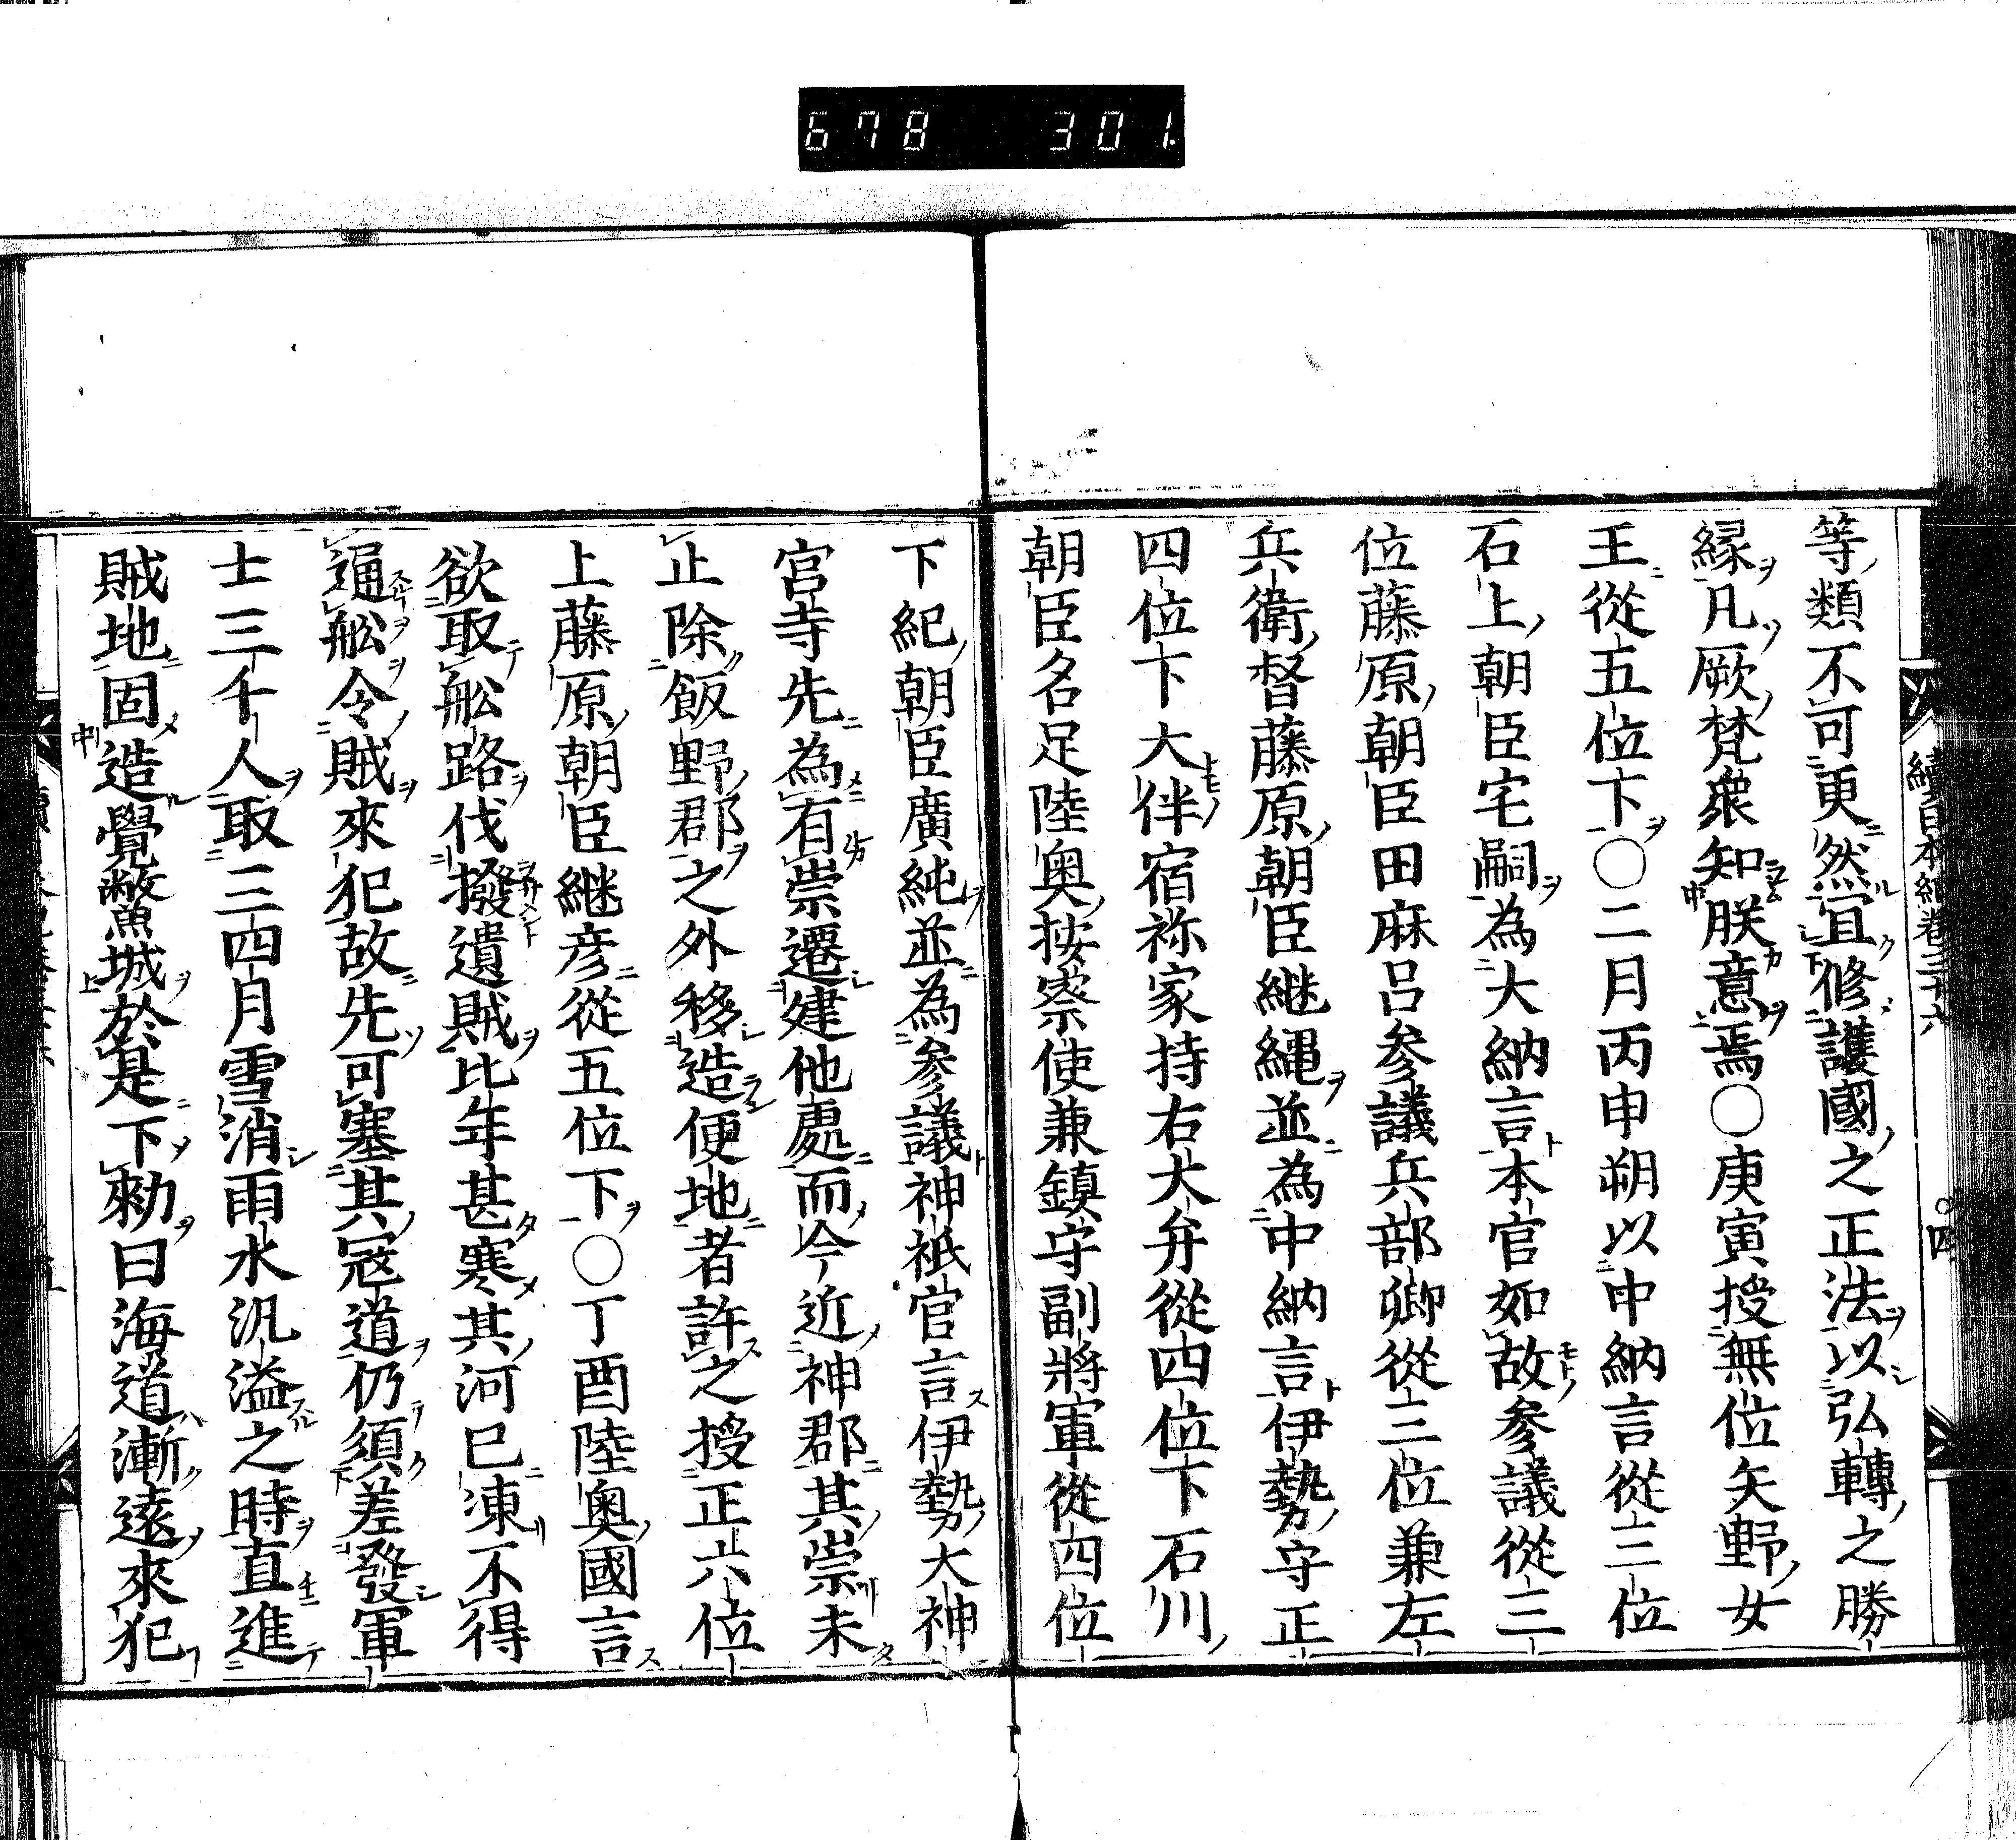 678 301.
續日本紀卷三十六
四
等類不可更然宜修護國之正法以弘轉之勝
縁凡厥梵衆知朕意焉〇庚寅授無位矢野女
王從五位下〇二月丙申朔以中納言從三位
石上朝臣宅嗣為大納言本官如故參議從三
位藤原朝臣田麻呂參議兵部卿從三位兼左
兵衛督藤原朝臣継縄並為中納言伊勢守正
四位下大伴宿祢家持右大弁從四位下石川
朝臣名足陸奥按察使兼鎮守副將軍從四位
下紀朝臣廣純並為參議神祇官言伊勢大神
宮寺先為有崇遷建他處而今近神郡其崇未
止除飯野郡之外移造便地者許之授正六位
上藤原朝臣継彦從五位下〇丁酉陸奥國言
欲取舩路伐撥遺賊比年甚寒其河已凍不得
通舩令賊來犯故先可塞其寇道仍須差發軍
士三千人取三四月雪消雨水汎溢之時直進
賊地固造覺鱉城於是下勅曰海道漸遠來犯